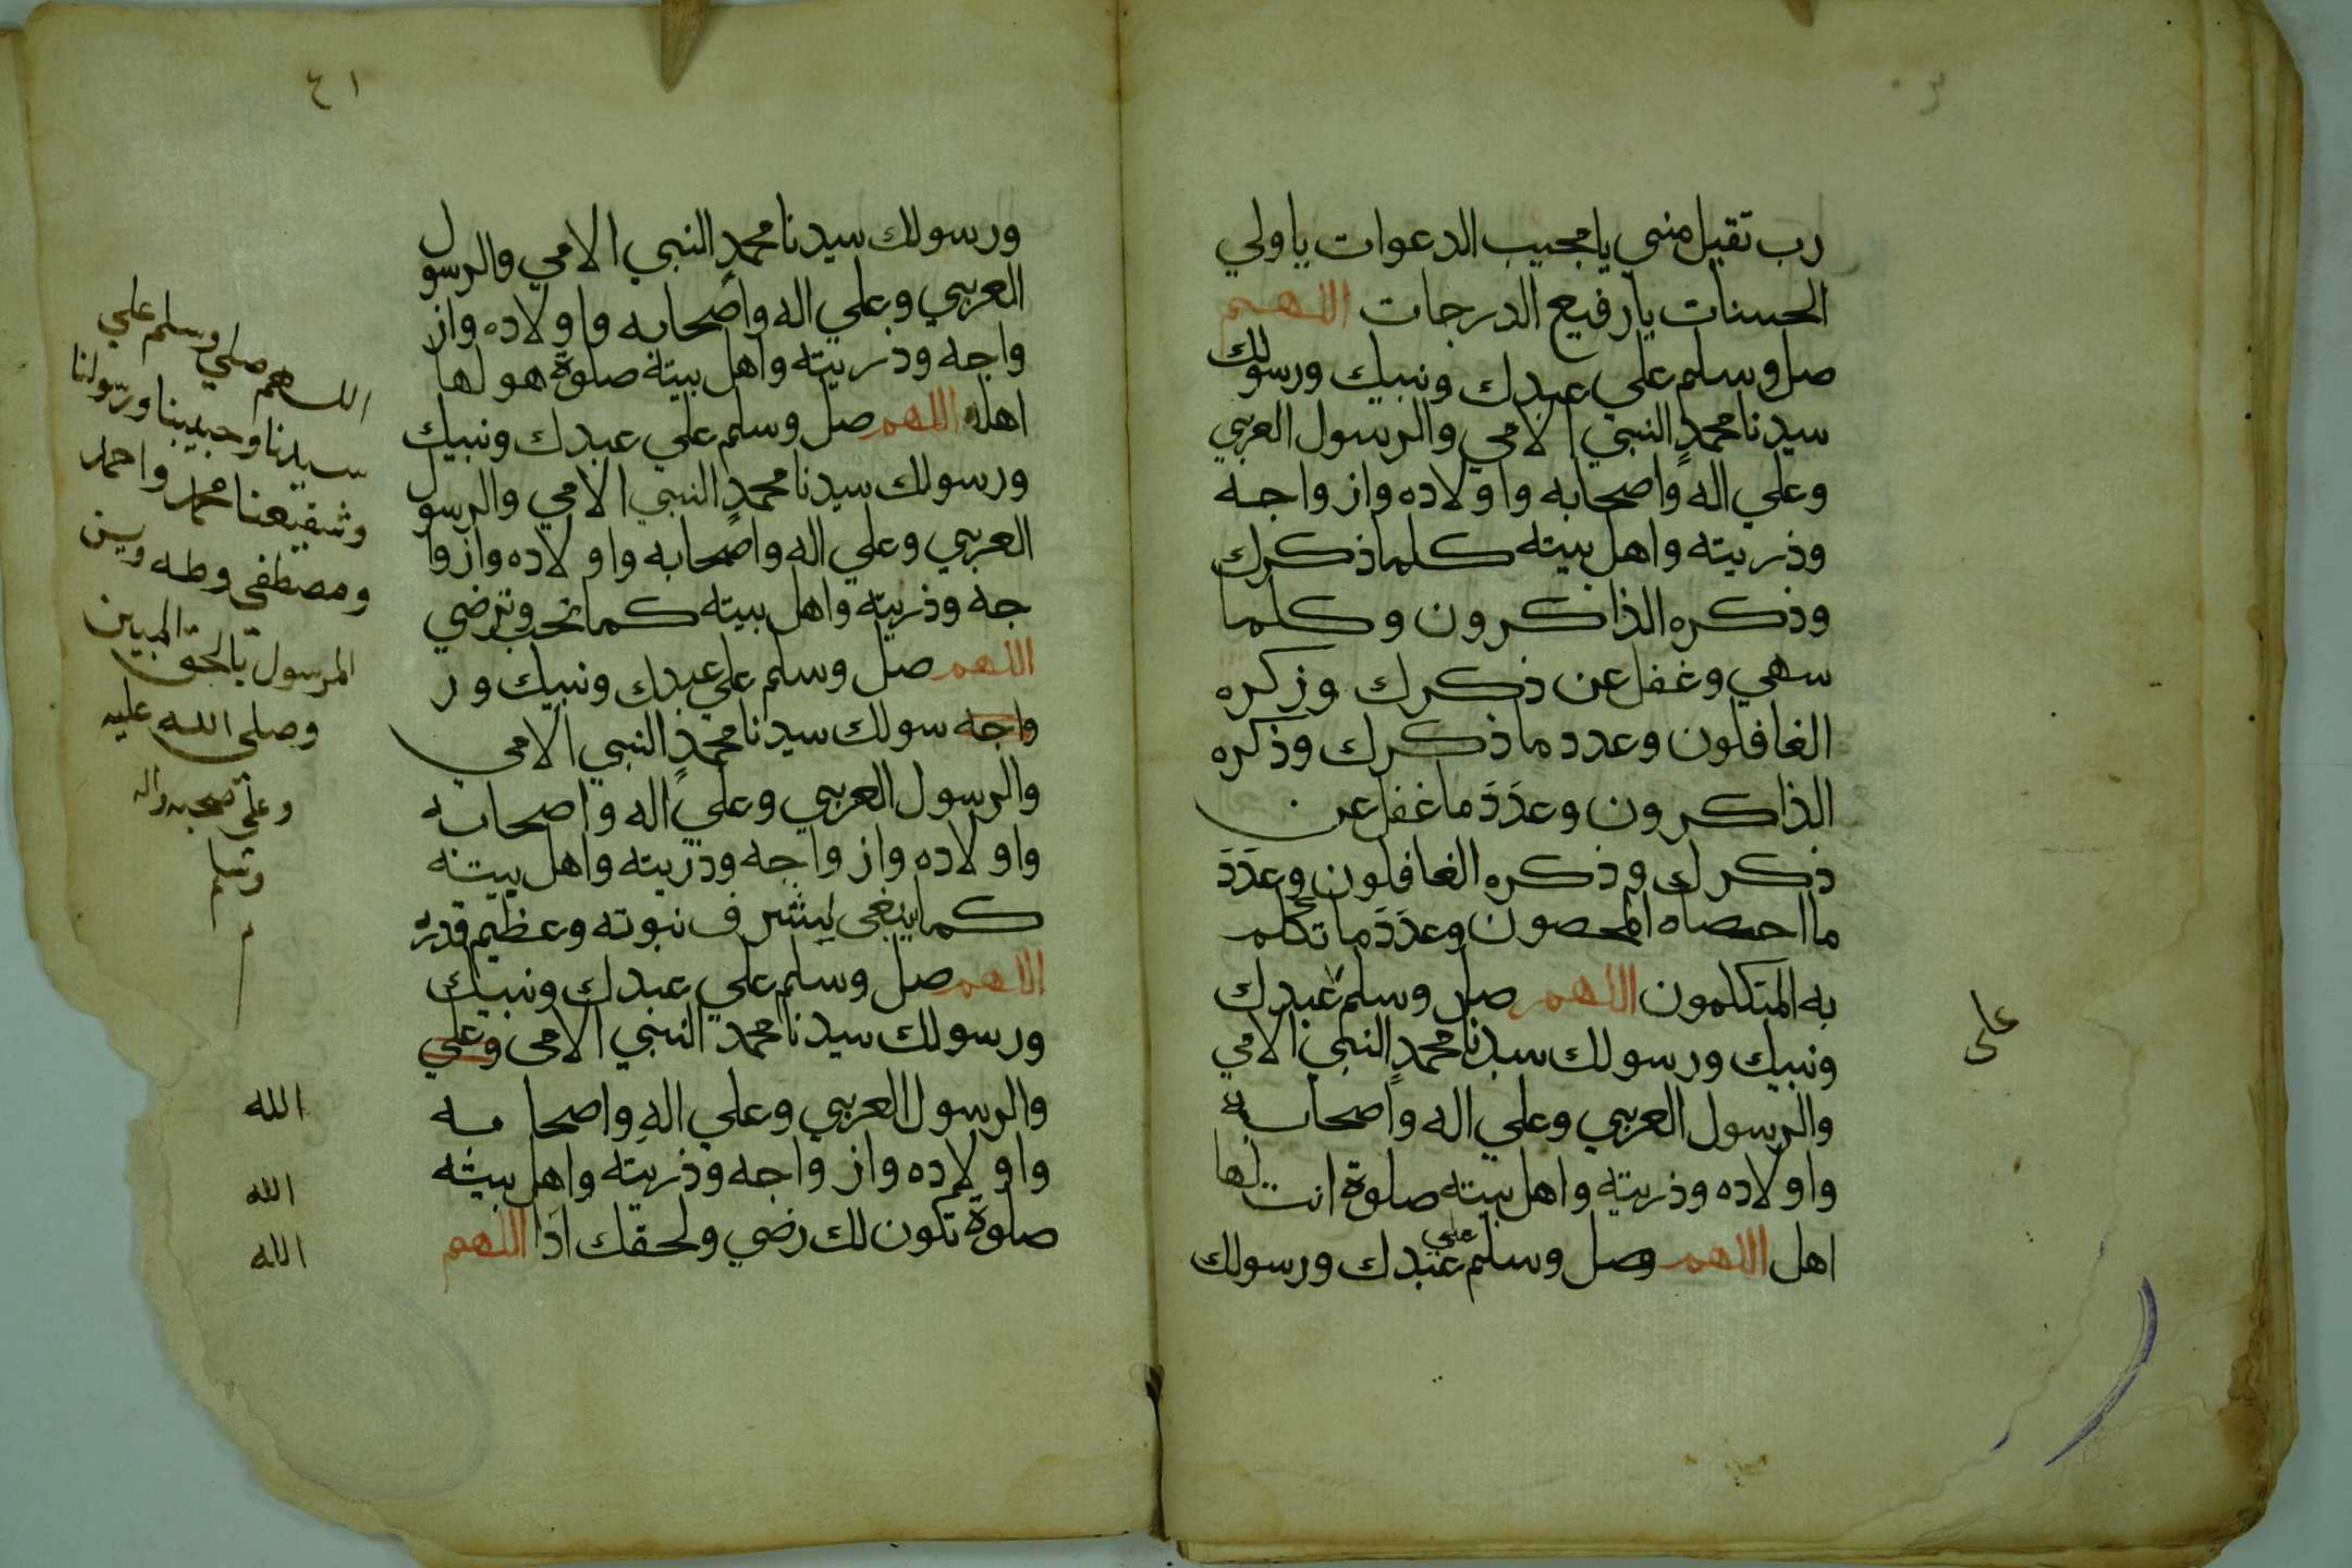 رب تقبل مني يا مجيب الدعوات يا ولي
الحسنات يا رفيع الدرجات اللهم
صل وسلم علي عبدك ونبيك ورسولك
سيدنا محمدٍ النبي الامي والرسول العربي
وعلي اله واصحابه واولاده وازواجه
وذريته واهل بيته كلما ذكرك
وذكره الذاكرون وكلما
سهي وغفل عن ذكرك وزكره
الغافلون وعدد ما ذكرك وذكره
الذاكرون وعدَدَ ما غفل عن
ذكرك وذكره الغافلون وعدَدَ
ما احصاه المحصون وعدَدَ ما تكلم
به المتكلمون اللهم صل وسلم عبدك
على
ونبيك ورسولك سيدنا محمدٍ النبي الامي
والرسول العربي وعلي اله واصحابه
واولاده وذريته واهل بيته صلوة انت لها
اهل اللهم وصل وسلم علي عبدك ورسولك
٤١
ورسولك سيدنا محمدٍ النبي الامي والرسول
العربي وعلي اله واصحابه واولاده واز
واجه وذريته واهل بيته صلوة هو لها
اهله اللهم صل وسلم علي عبدك ونبيك
ورسولك سيدنا محمدٍ النبي الامي والرسول
العربي وعلي اله واصحابه واولاده وازوا
جه وذريته واهل بيته كما تحب وترضي
اللهم صل وسلم علي عبدك ونبيك ور
واجه سولك سيدنا محمدٍ النبي الامي
والرسول العربي وعلي اله واصحابه
واولاده وازواجه وذريته واهل بيته
كما ينبغي لشرف نبوته وعظيم قدره
اللهم صل وسلم علي عبدك ونبيك
ورسولك سيدنا محمد النبي الامي وعلي
والرسول العربي وعلي اله واصحابه
واولاده وازواجه وذريته واهل بيته
صلوة تكون لك رضي ولحقك اداً اللهم
اللهم صلي وسلم علي
سيدنا وحبيبنا ورسولنا
وشفيعنا محمد واحمد
ومصطفي وطه ويسن
المرسول بالحق المبين
وصلي الله عليه
وعلي صحبه واله
وسلم
م
الله
الله
الله